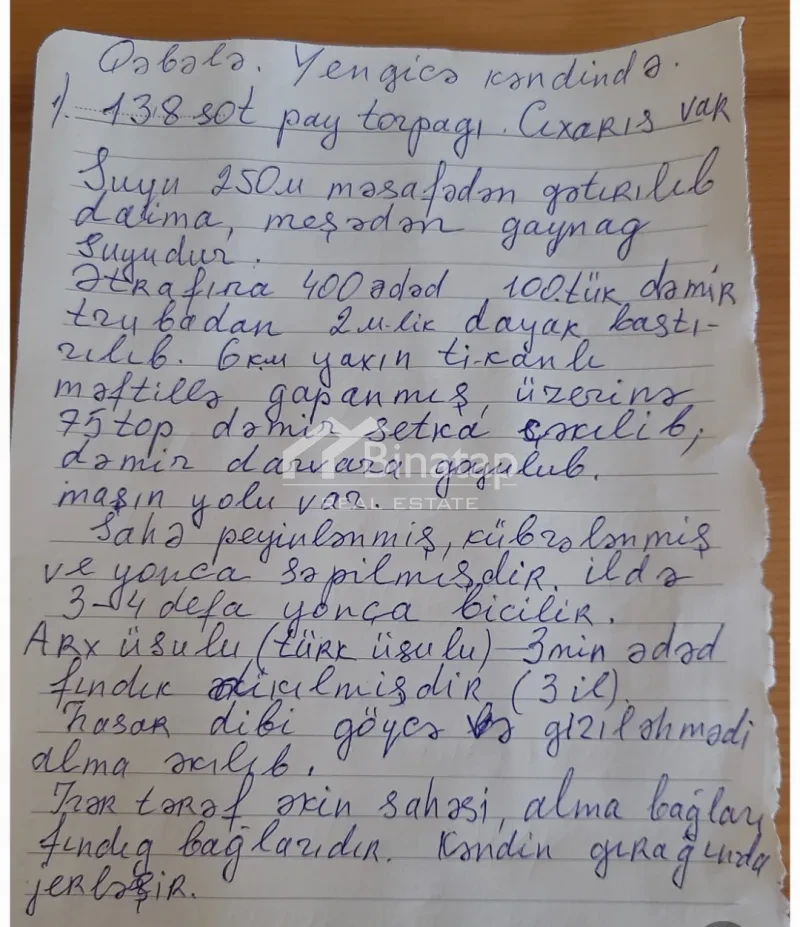 Qəbələ. Yengicə kəndində.
1). 138 sot pay torpagı. Cıxarış var
Suyu 250 м məsafədən gətirilib
daima, meşədən gaynag
suyudur.
Ətrafına 400 ədəd 100.tük dəmir
trubadan 2 м-lik dayak bastı-
rılıb. 6 км yaxın ti-kanlı
məftillə gapanmış, üzerinə
75 top dəmir setka çəkilib,
dəmir darvaza goyulub.
maşın yolu var.
Sahə peyinlənmiş, kübrələnmiş
ve yonca səpilmişdir. ildə
3-4 defa yonca bicilir.
Arx üsulu (türk üsulu) 3 min ədəd
fındık əkilmişdir (3 il).
hasar dibi göycə və gızıləhmədi
alma əkılıb.
Hər tərəf əkin sahəsi, alma bağları
fındıg bağlarıdır. Kəndin gırağında
jerləşir.
Binatap
REAL ESTATE